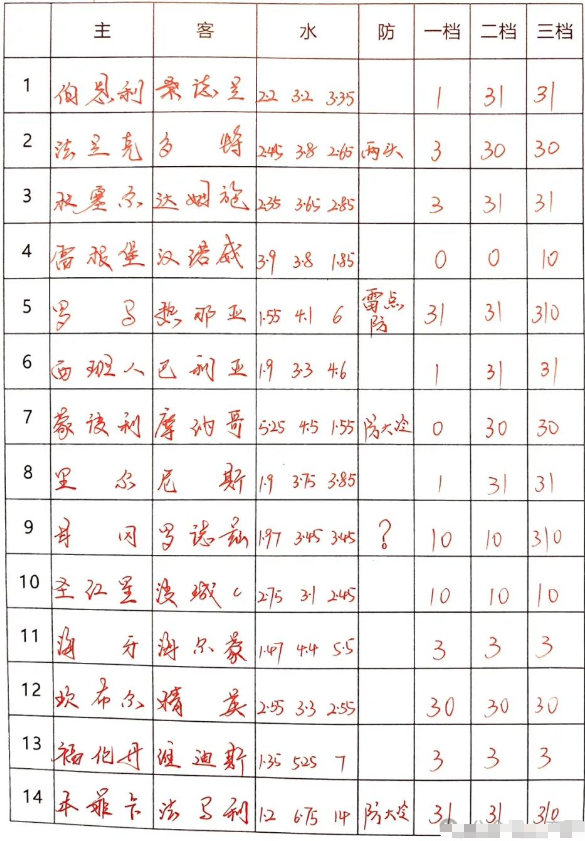 主 客 水 防 一档 二档 三档
1 伯恩利 桑德兰 2.2 3.2 3.35 1 31 31
2 法兰克 多特 2.45 3.8 2.65 两头 3 30 30
3 杜塞尔 达姆施 2.35 3.65 2.85 3 31 31
4 雷根堡 汉诺威 3.9 3.8 1.85 0 0 10
5 罗马 热那亚 1.55 4.1 6 雷点防 31 31 310
6 西班人 巴利亚 1.9 3.3 4.6 1 31 31
7 蒙彼利 摩纳哥 5.25 4.5 1.55 防大冷 0 30 30
8 里尔 尼斯 1.9 3.75 3.85 1 31 31
9 丹冈 罗诺兹 1.97 3.45 3.45 ? 10 10 310
10 圣红星 波城 2.75 3.1 2.45 10 10 10
11 海牙 海尔蒙 1.47 4.4 5.5 3 3 3
12 坎布尔 精英 2.55 3.3 2.55 30 30 30
13 福伦丹 维迪斯 1.35 5.25 7 3 3 3
14 本菲卡 法马利 1.2 6.75 14 防大冷 31 31 310